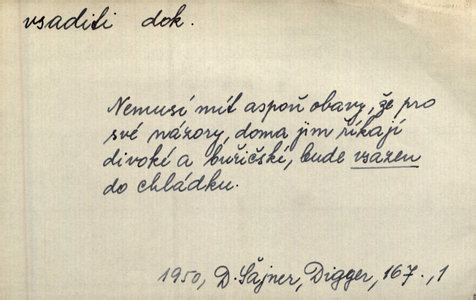 vsaditi dok.
Nemusí mít aspoň obavy, že pro
své názory, doma jim říkají
divoké a buřičské, bude vsazen
do chládku.
1950, D. Šajner, Digger, 167., 1